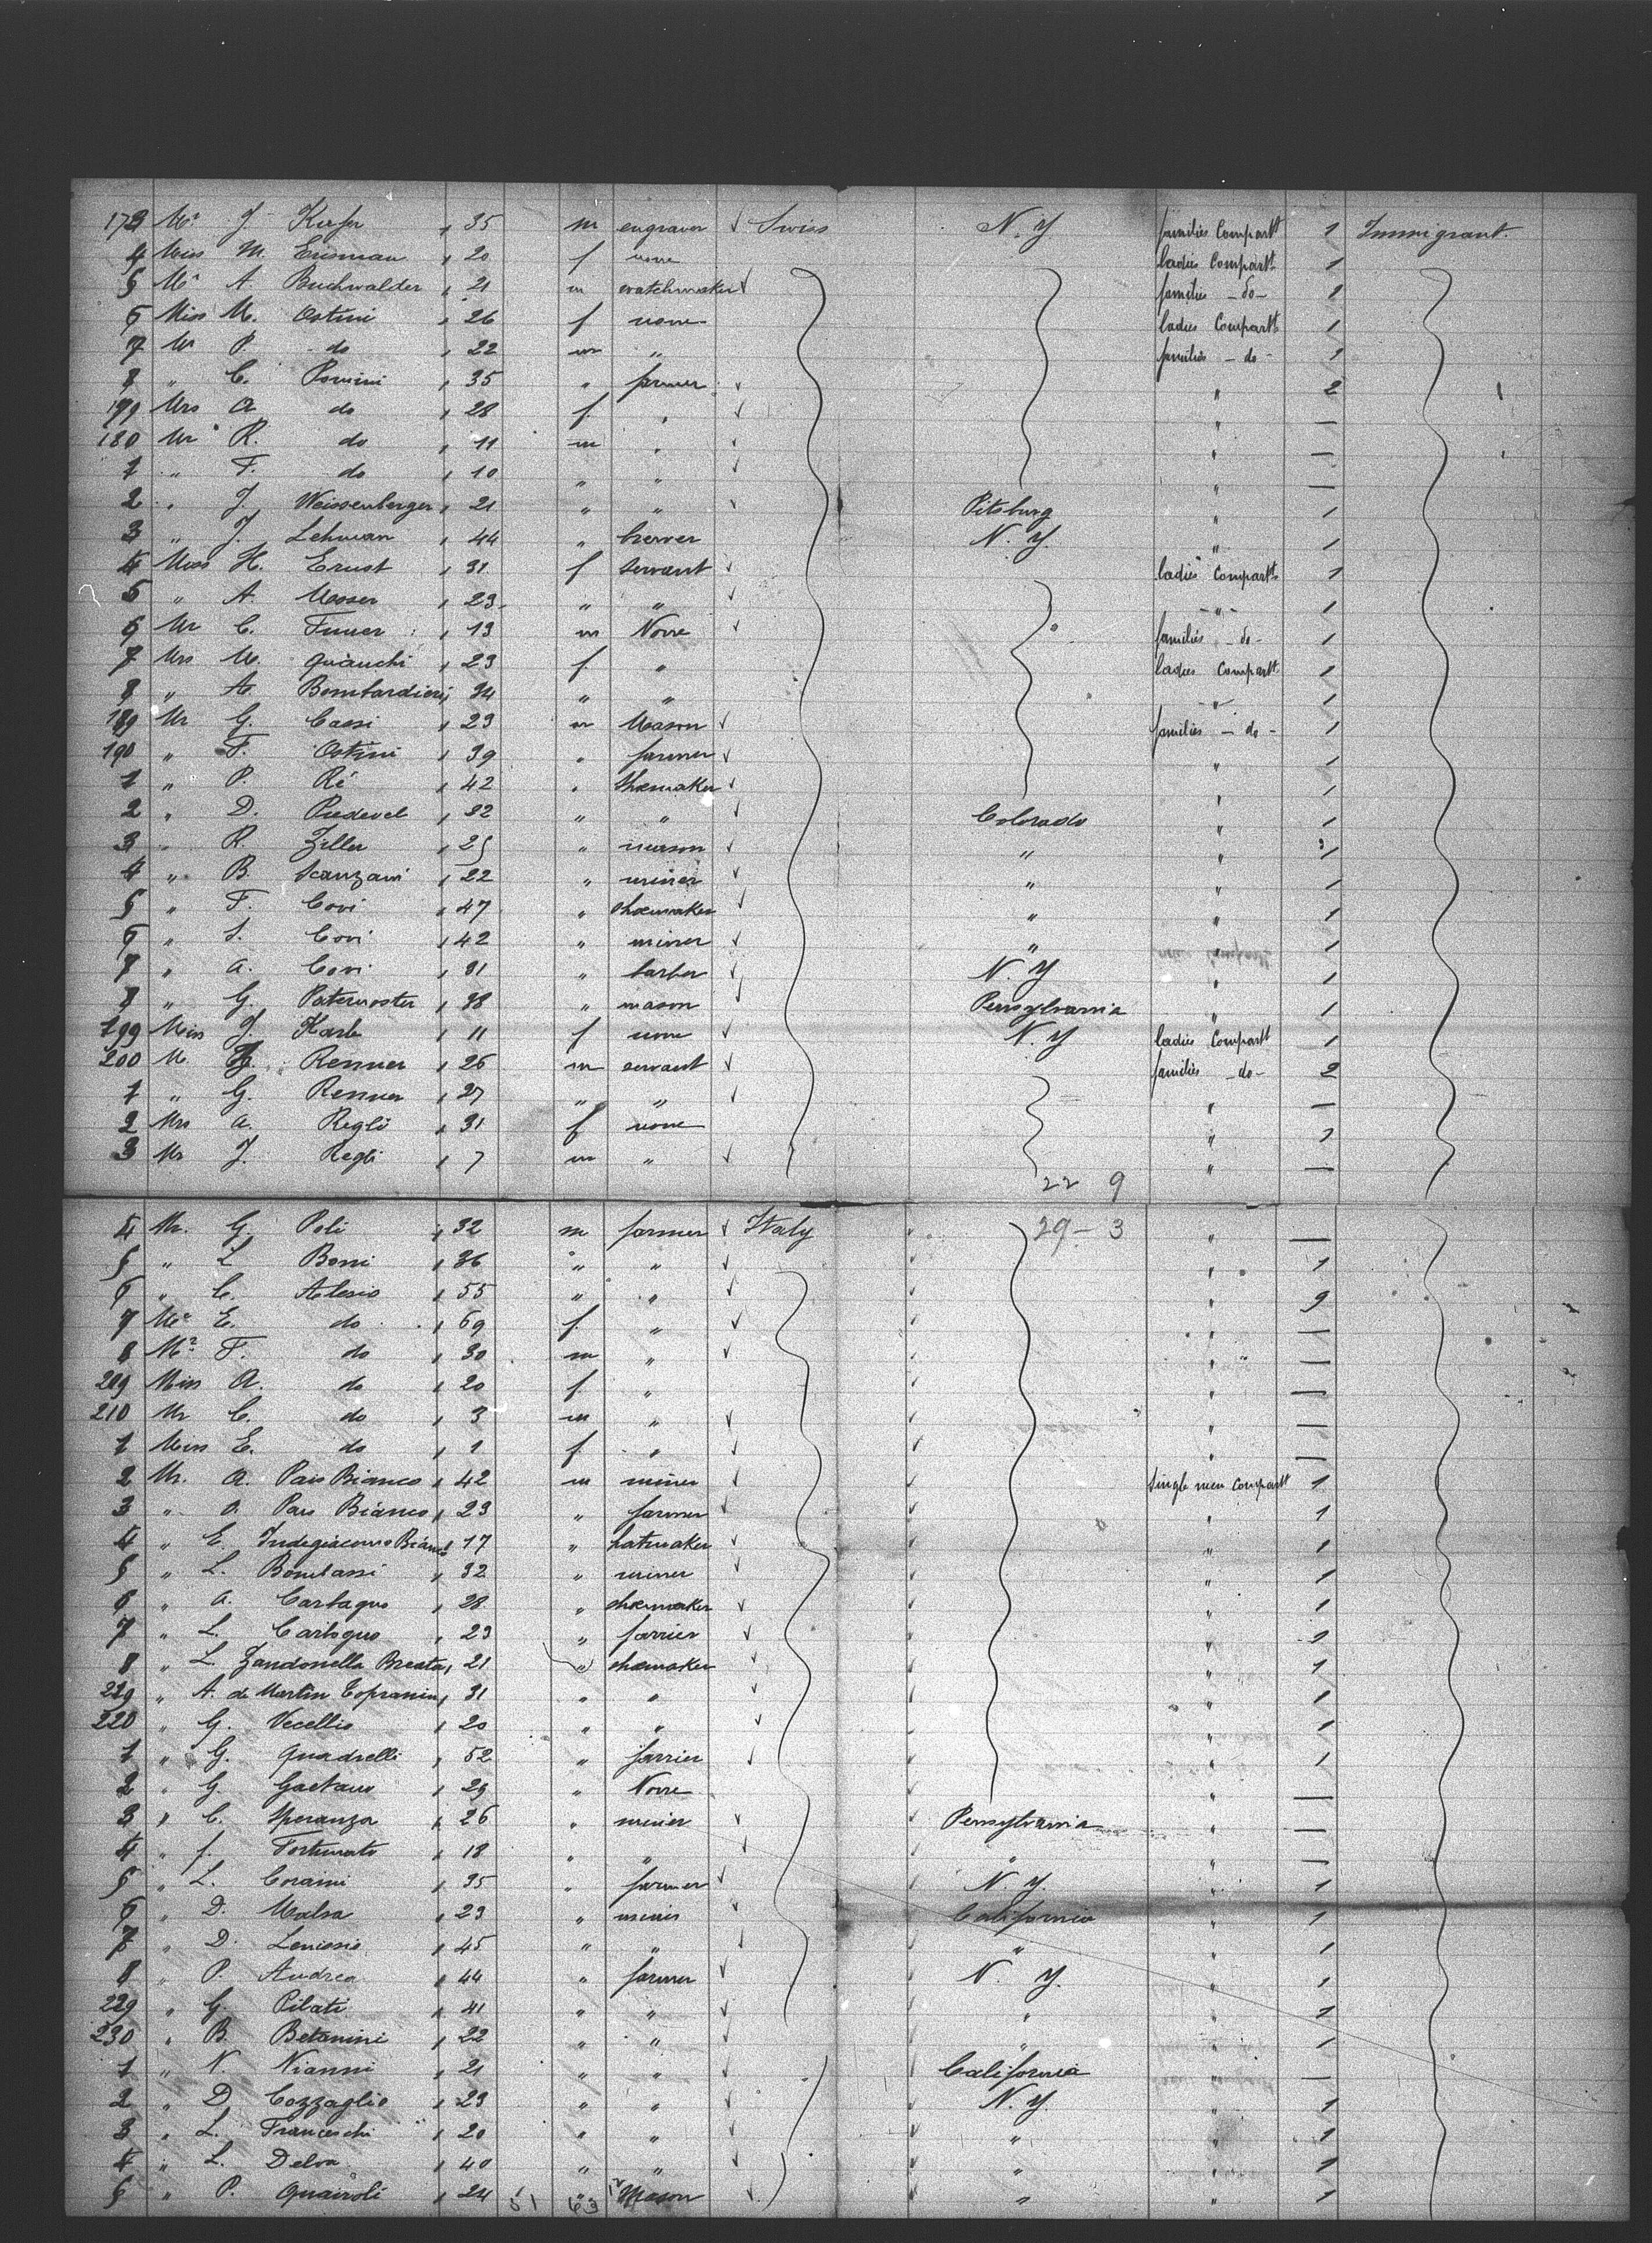 173 Mr J Kiefer 35 m engraver Swiss N. Y families Compartt 1 Immigrant.
4 Miss M. Erisman 20 f none ladies Compartt 1
5 Mr A. Buchwalder 21 m watchmaker families - do - 1
6 Miss M. Ostini 26 f none ladies Compartt 1
7 Mr P. do 22 m " families - do - 1
8 " C. Pomini 35 " farmer " 2
179 Mrs A do 28 f. " " —
180 Mr R. do 11 m " " —
1 " F. do 10 " " " —
2 " J. Weissenberger 21 " " Pitsburg " 1
3 " J. Lehman 44 " brewer N. Y. " 1
4 Miss H. Ernst 31 f servant ladies Compartt 1
5 " A. Moser 23 " " - " - 1
6 Mr C. 13 m None families - do - 1
7 Mrs M. Quanchi 23 f. " ladies Compartt 1
8 " A. Bombardieri 34 " " " 1
189 Mr G. Cassi 23 m Mason families - do - 1
190 " F. Ostini 39 " farmer " 1
1 " P. Ré 42 " Shoemaker " 1
2 " D. Predevel 32 " " Colorado " 1
3 " R. Ziller 25 " mason " " 1
4 " B. Scanzani 22 " miner " " 1
5 " F. Covi 47 " shoemaker " " 1
6 " S. Covi 42 " miner " " 1
7 " A. Covi 31 " barber N. Y " 1
8 " G. Paternoster 38 " mason Pensylvania " 1
199 Miss J. Karle 11 f none N. Y ladies Compartt 1
200 M Renner 26 m servant families - do - 2
1 " G. Renner 27 " " " —
2 Mrs A. Regli 31 f none " 1
3 Mr J. Regli 7 m " " —
22 9
4 Mr. G. Poli 32 m farmer Italy 29 - 3 " —
5 " L Bonni 36 " " " 1
6 " C. Alesio 55 " " " 9
7 Mrs E. do 69 f. " " —
8 Mr F. do 30 m " " —
209 Miss A. do 20 f. " " —
210 Mr C. do 3 m " " —
1 Miss E. do 1 f. " " —
2 Mr. A. Pais Bianco 42 m miner single men Compartt 1
3 " A. Pais Bianco 23 " farmer " 1
4 " E. Indegiacomo Bianco 17 " hatmaker " 1
5 " L. Bombassi 32 " miner " 1
6 " A. Cartagno 28 " shoemaker " 1
7 " L. Cartogno 23 " farrier " 1
8 " L. Zandonella Breata 21 " shoemaker " 1
219 " A. de Martin Topranin 31 " " " 1
220 " G. Vecellio 20 " " " 1
1 " G. Quadrelli 52 " farrier " 1
2 " G. Gaetano 29 " None " —
3 " C. Speranza 26 " miner Pensylvania " —
4 " f. Fortunato 18 " " " " —
5 " L. Coraini 35 " farmer N. Y. " 1
6 " D. Malsa 23 " California " 1
7 " D. Leniosio 45 " " " " 1
8 " P. Andrea 44 " farmer N. Y. " 1
229 " G. Pilati 41 " " " " 1
230 " B. Betanini 22 " " " " 1
1 " N. Nianni 21 " " California " —
2 " D. Cozzaglio 23 " " N. Y. " 1
3 " L. Franceschi 20 " " " " 1
4 " L. Delva 40 " " " " 1
5 " P. Quairoli 24 51 63 Mason " " 1